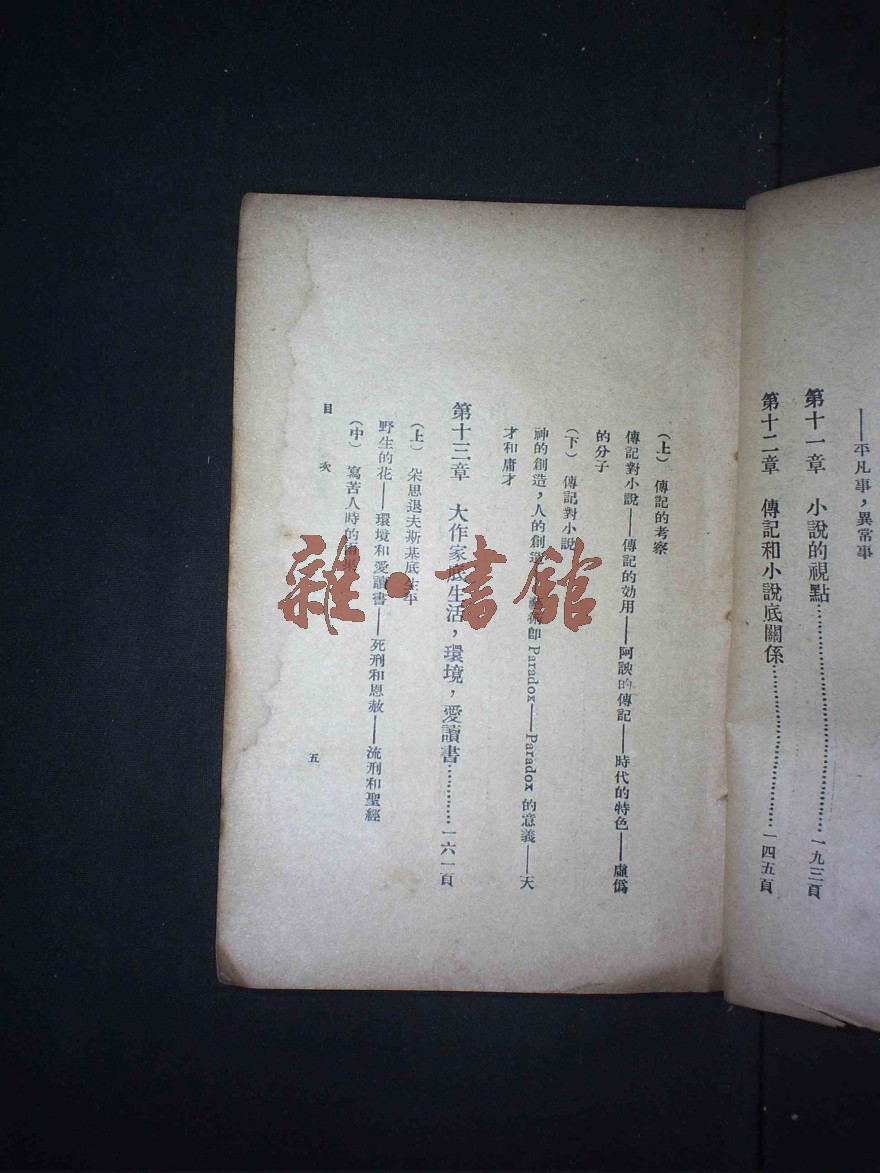 ——平凡事，異常事
第十一章　小說的視點……………………一九三頁
第十二章　傳記和小說底關係………………一四五頁
（上）　傳記的考察
傳記對小說——傳記的効用——阿諛的傳記——時代的特色——虛僞
的分子
（下）　傳記對小說
神的創造，人的創造——藝術即Paradox——Paradox的意義——天
才和庸才
第十三章　大作家底生活，環境，愛讀書…………一六一頁
（上）　朵思退夫斯基底生平
野生的花——環境和愛讀書——死刑和恩赦——流刑和聖經
（中）　寫苦人時的
目次
五
雜·書館